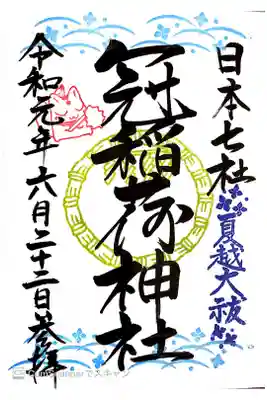 日本七社
夏越大祓
冠稲荷神社
令和元年六月二十二日参拝
CamScannerでスキャン